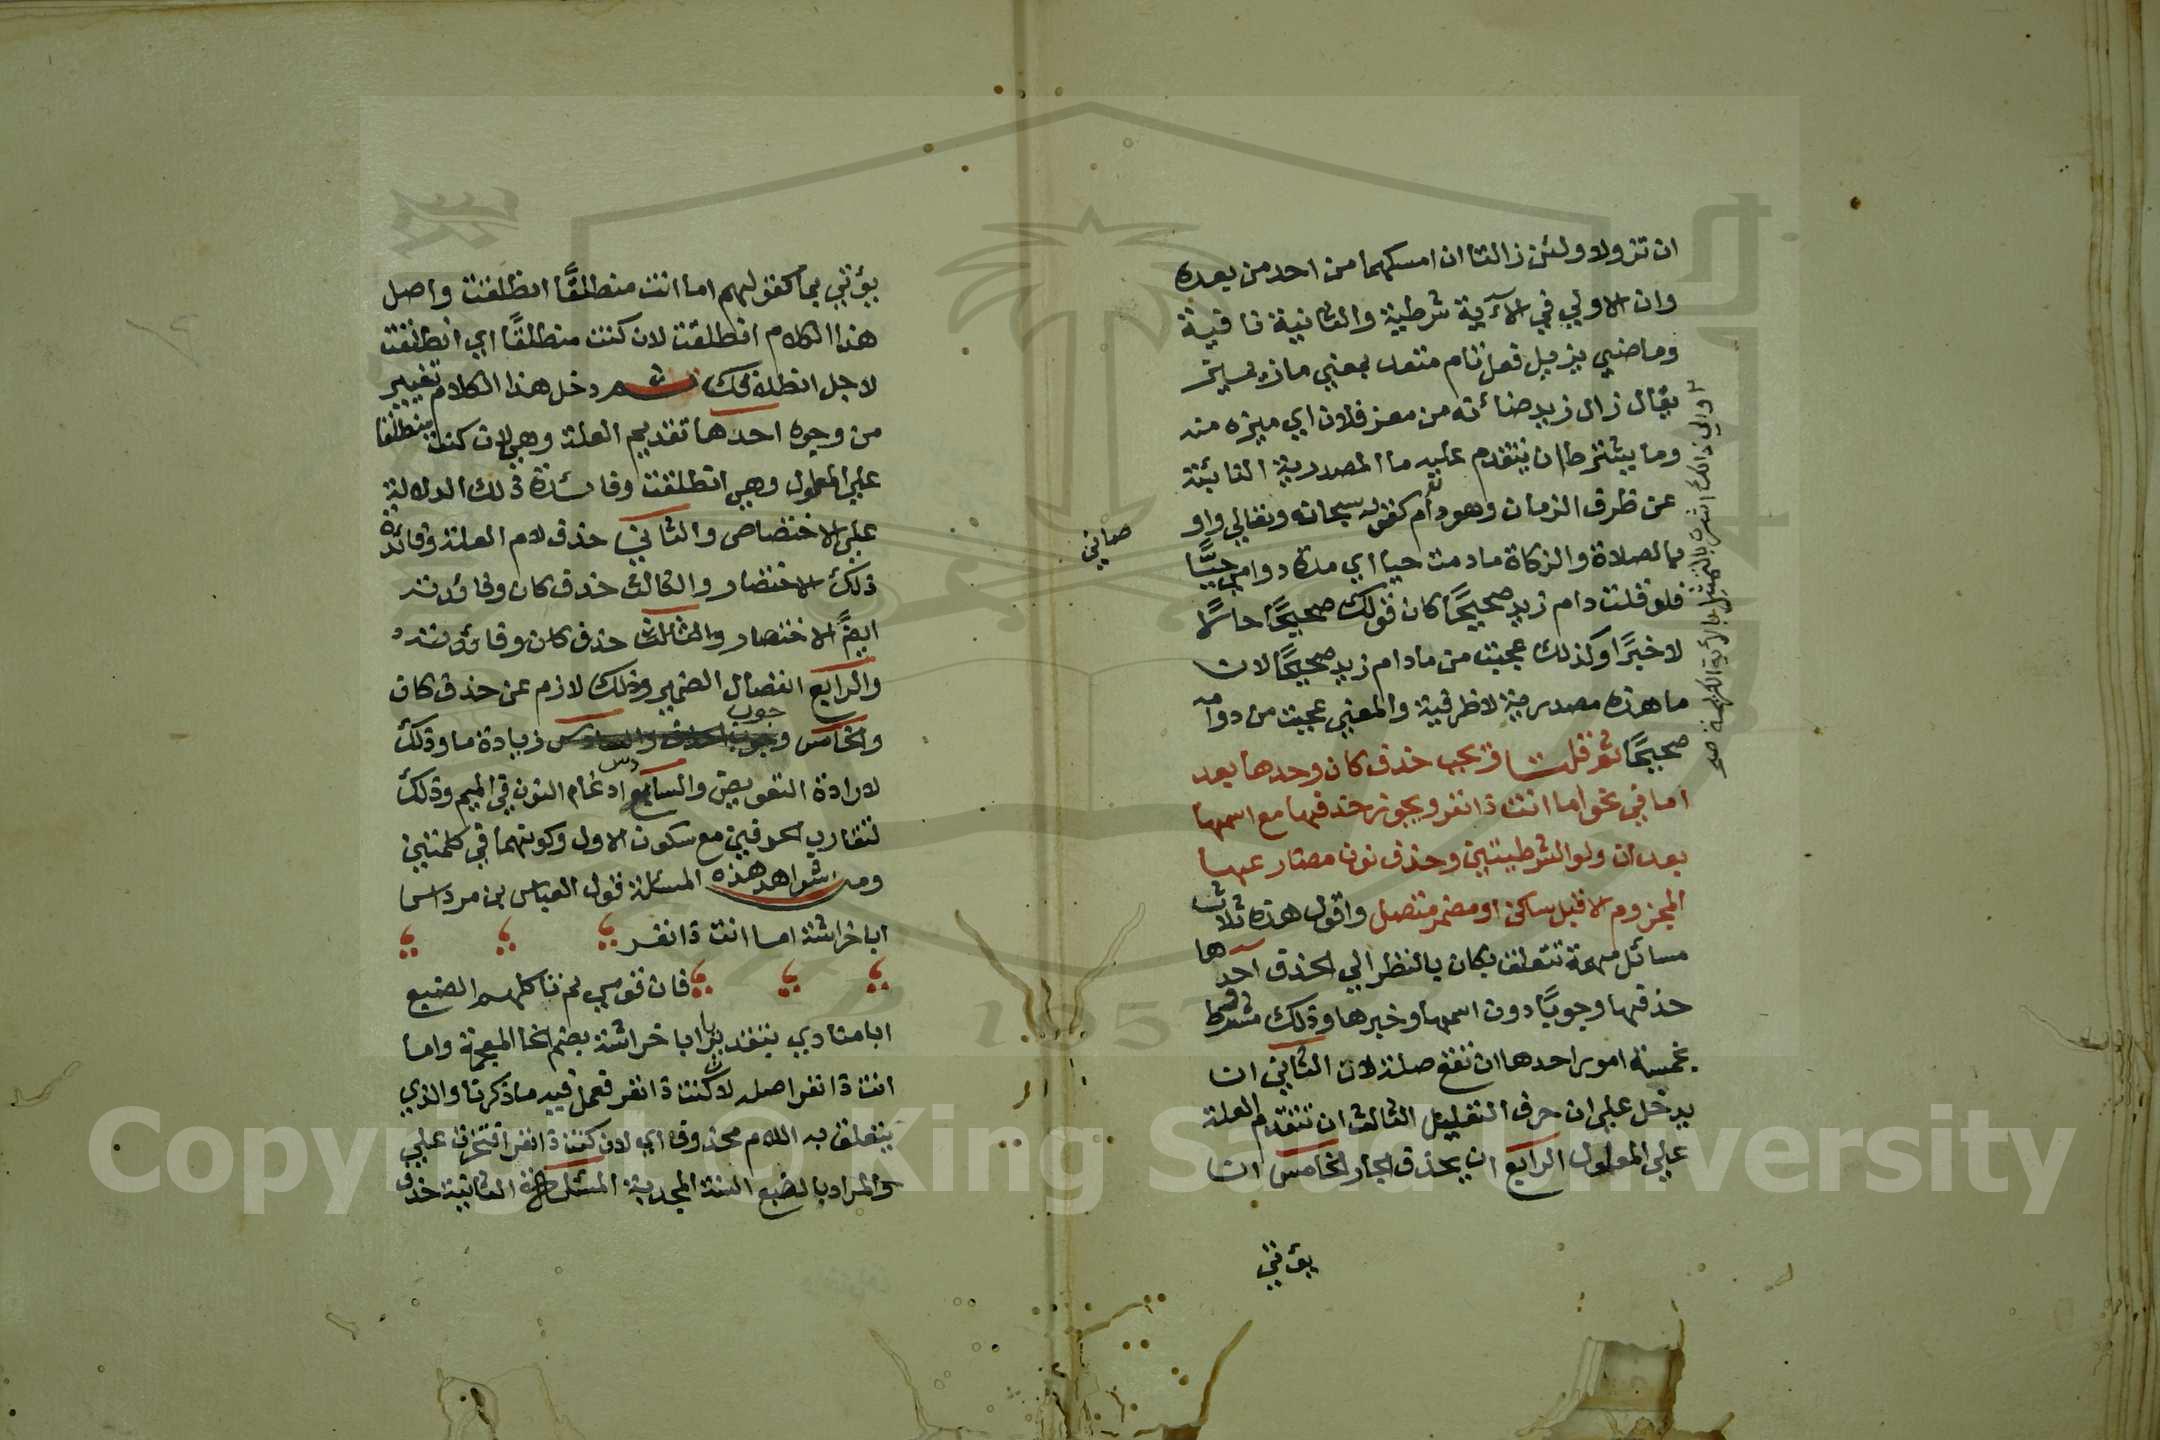 ان تزولا ولئن زالتا ان امسكهما من احد من بعده
وان الاولي في الآية شرطية والثانية نافية
وماضي يزيل فعل تام متعد بمعني ماز يميز
يقال زال زيد ضائه من معز فلان اي ميزه منه
وما يشترط ان يتقدم عليه ما المصدرية النائبة
عن ظرف الزمان وهو دام كقوله سبحانه وتعالي واو
صاني
بالصلاة والزكاة مادمت حيا اي مدة دوامي حيًّا
فلو قلت دام زيد صحيحًا كان قولك صحيحًا حالًا
لا خبرًا وكذلك عجبت من مادام زيد صحيحًا لان
ما هذه مصدرية لا ظرفية والمعني عجبت من دوامه
صحيحًا ثم قلت و يجب حذف كان وحدها بعد
اما في نحو اما انت ذا نفر ويجوز حذفها مع اسمها
بعد ان ولو الشرطيتين وحذف نون مضارعها
المجزوم الا قبل ساكن او مضمر متصل واقول هذه ثلاث
مسائل مهمة تتعلق بكان بالنظر الي الحذف احدها
حذفها وجوبًا دون اسمها وخبرها وذلك مشروط
بخمسة امور احدها ان تقع صلة لان الثاني ان
يدخل علي ان حرف التعليل الثالث ان تتقدم العلة
علي المعلول الرابع ان يحذف الجار الخامس ان
يؤتي
والي ذلك اشرت بالتمثيل بالآية الكريمة صح
يؤتي بما كقولهم اما انت منطلقًا انطلقت واصل
هذا الكلام انطلقت لان كنت منطلقًا اي انطلقت
لاجل انطلاقك ثم دخل هذا الكلام تغيير
من وجوه احدها تقديم العلة وهي لان كنت منطلقا
علي المعلول وهي انطلقت وفائدة ذلك الدلالة
علي الاختصاص والثاني حذف لام العلة وفائدة
ذلك الاختصار والثالث حذف كان وفائدته
ايضًا الاختصار والثالث حذف كان وفائدته
والرابع انفصال الضمير وذلك لازم عن حذف كان
والخامس وجوب زيادة ما وذلك
لارادة التعويض والسادس ادغام النون في الميم وذلك
لتقارب الحرفين مع سكون الاول وكونهما في كلمتين
ومن شواهد هذه المسئلة قول العباس بن مرداس
ابا خراشة اما انت ذا نفر
فان قومي لم تاكلهم الضبع
ابا منادي بتقدير يا ابا خراشة بضم الخا المعجمة واما
انت ذا نفر اصله لان كنت ذا نفر فعمل فيه ما ذكرنا والذي
يتعلق به اللام محذوف اي لان كنت ذا نفر افتخرت علي
والمراد بالضبع السنة المجدبة المسئلة الثانية حذف